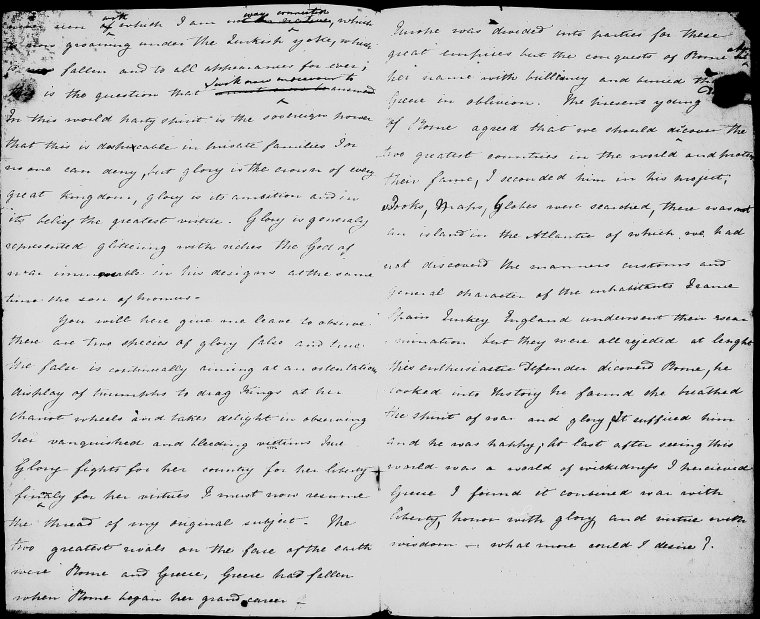 with
way connected
which I am not the relative, which
is now groaning under the Turkish yoke, which
fallen and to all appearances for ever;
is the question that answered
In this world party spirit is the sovereign power
that this is despicable in private families I or
no one can deny, but glory is the crown of every
great kingdom, glory is its ambition and in
its belief the greatest virtue. Glory is generally
represented glittering with riches the God of
war immovable in his designs at the same
time the son of Momus.
You will here give me leave to observe
there are two species of glory false and true.
The false is continually aiming at an ostentatious
display of triumphs to drag Kings at her
chariot wheels and takes delight in observing
her vanquished and bleeding victims True
Glory fights for her country for her liberty
finally for her virtues I must now resume
the thread of my original subject. The
two greatest rivals on the face of the earth
were Rome and Greece, Greece had fallen
when Rome began her grand career –
Europe was divided into parties for these
great empires but the conquests of Rome
her name with brilliancy and buried
Greece in oblivion. The present young
of Rome agreed that we should dicover the
two greatest countries in the world and protect
their fame, I seconded him in his project,
Books, Maps, Globes were searched, there was not
an island in the Atlantic of which we had
not discovered the manners customs and
general character of the inhabitants France
Spain Turkey England underwent their exam
ination but they were all rejected at lenght
This enthusiastic Defender dicoverd Rome, he
looked into History he found she breathed
the spirit of war and glory, It sufficed him
and he was happy; At last after seeing this
world was a world of wickedness I perceived
Greece I found it combined war with
liberty, honor with glory, and virtue with
wisdom – what more could I desire?